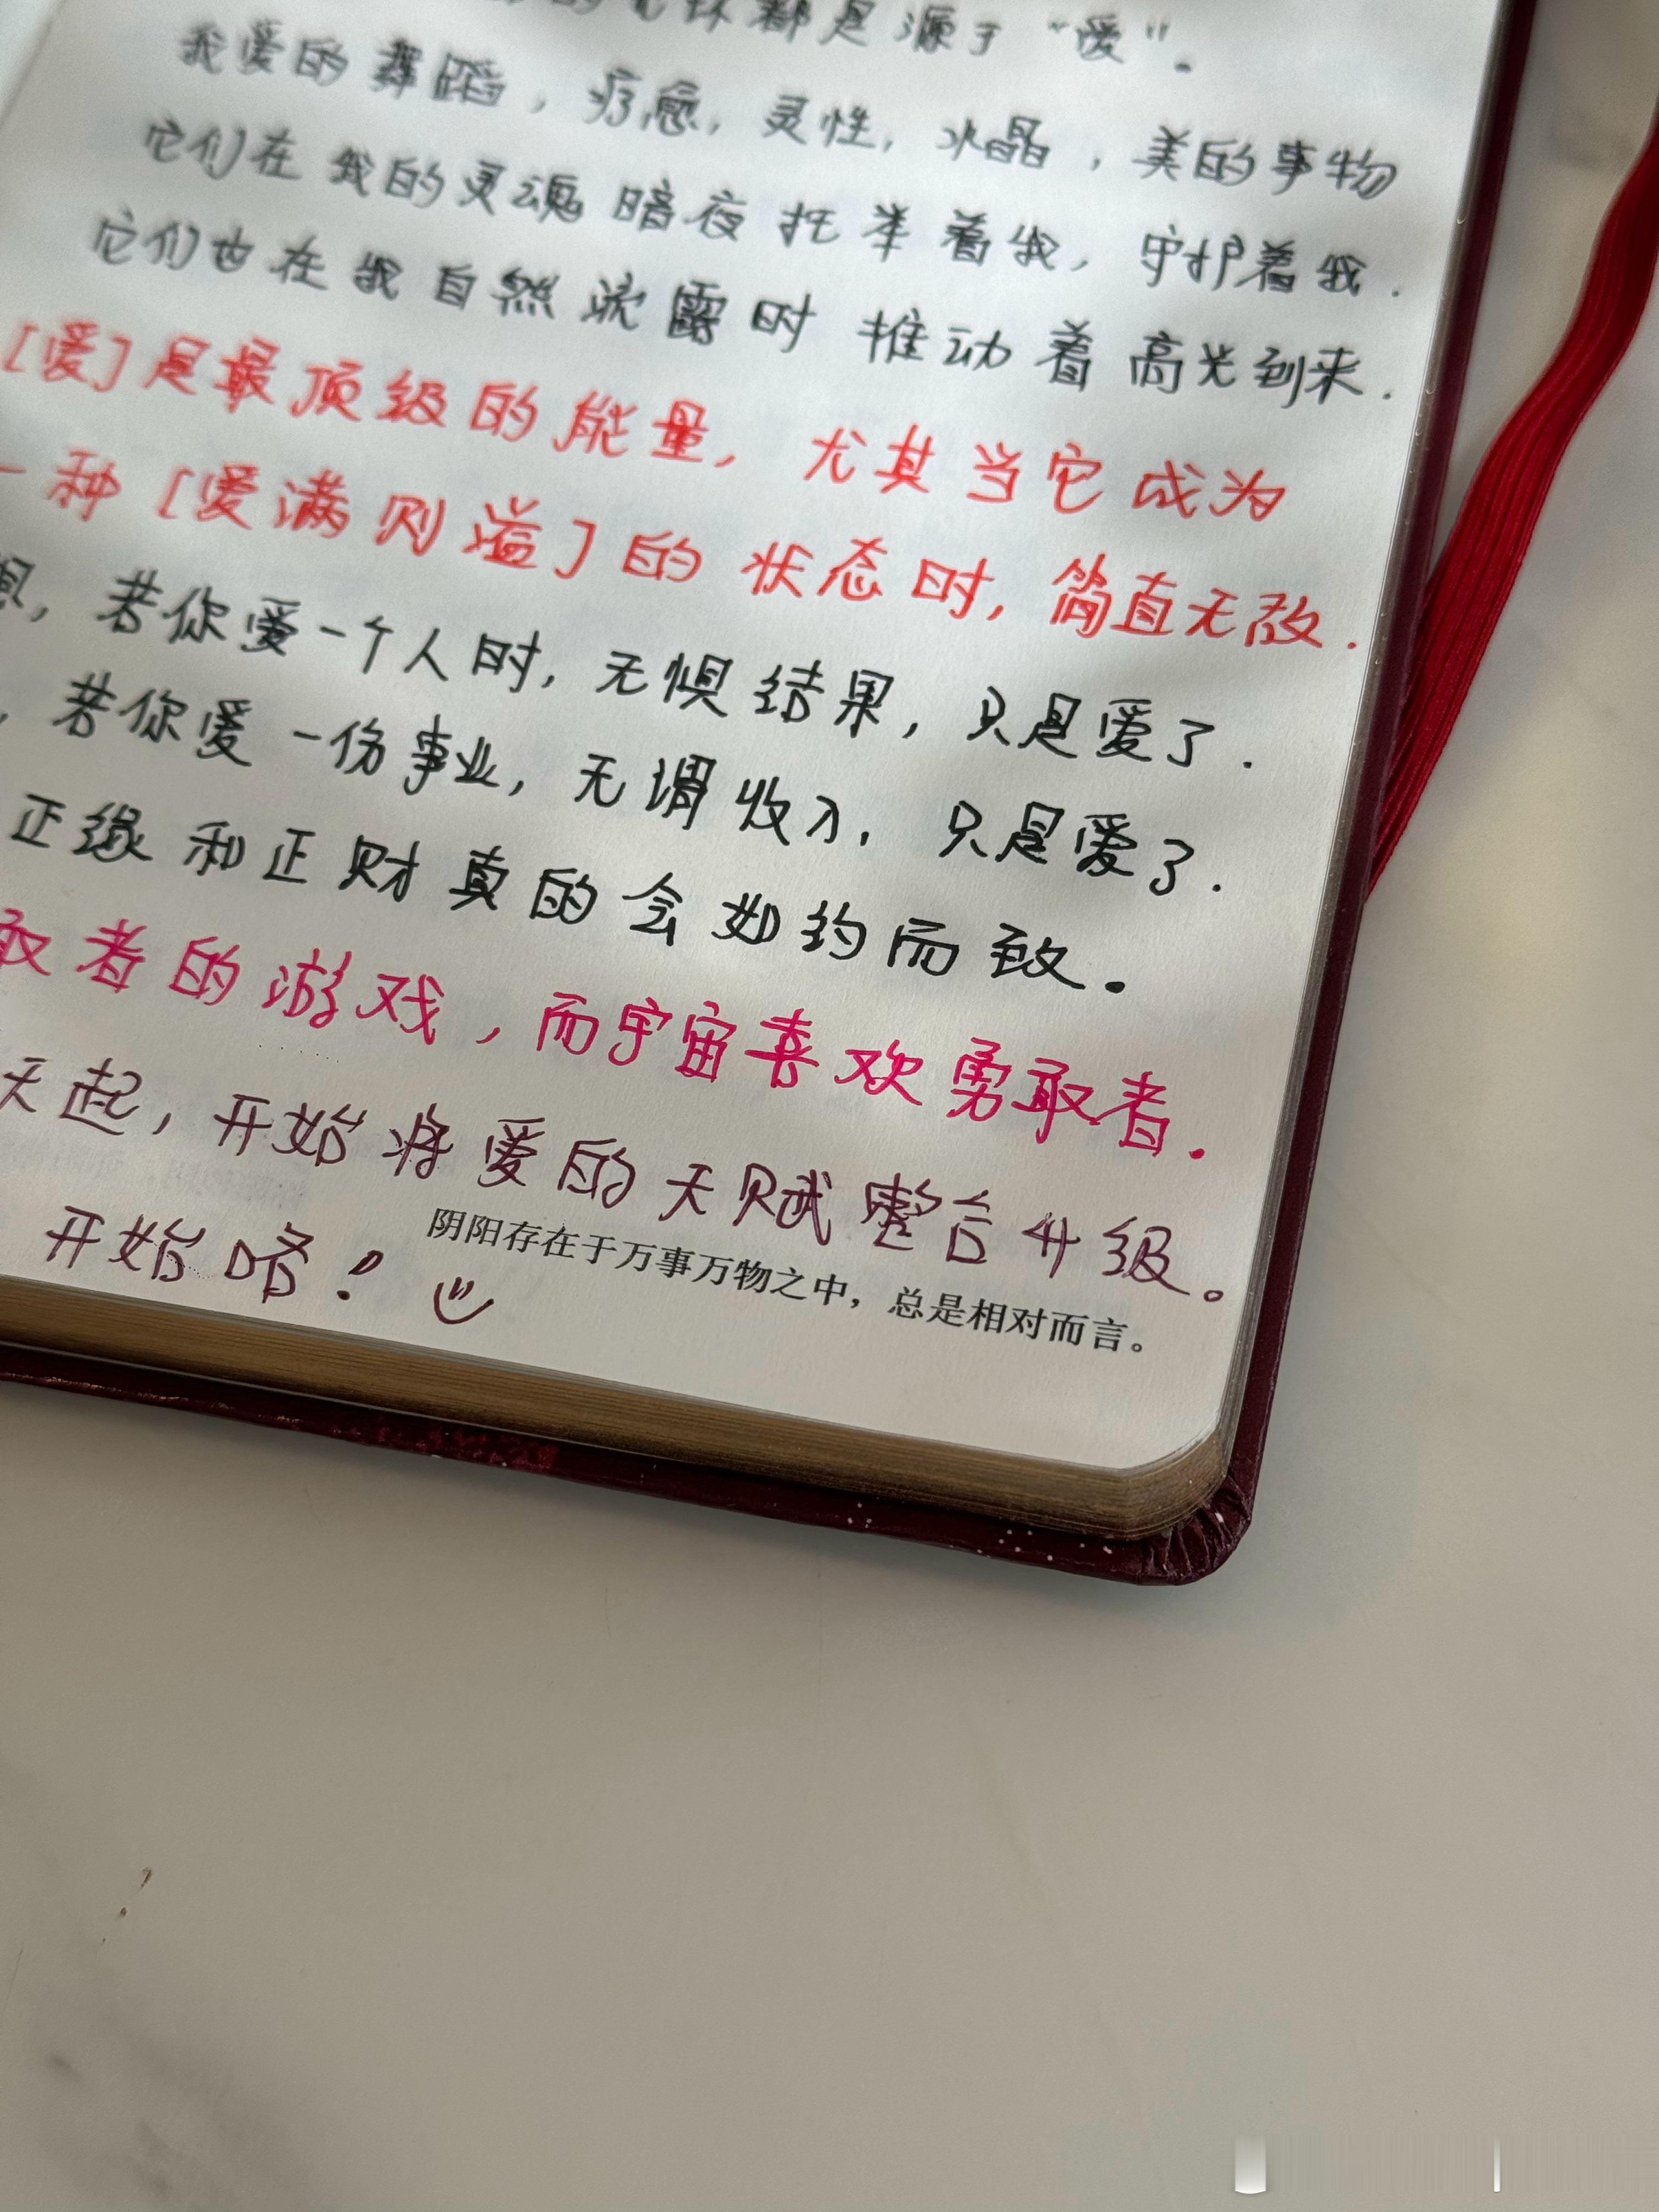 都是源于“爱”.
我爱的舞蹈,疗愈,灵性,水晶,美的事物
它们在我的灵魂暗夜托举着我,守护着我.
它们也在我自然流露时推动着高光到来.
[爱]是最顶级的能量,尤其当它成为
一种[爱满则溢]的状态时,简直无敌.
想,若你爱一个人时,无惧结果,只是爱了.
,若你爱一份事业,无谓收入,只是爱了.
正缘和正财真的会如约而致。
敢者的游戏,而宇宙喜欢勇敢者.
天起,开始将爱的天赋整合升级。
开始咯!
阴阳存在于万事万物之中，总是相对而言。